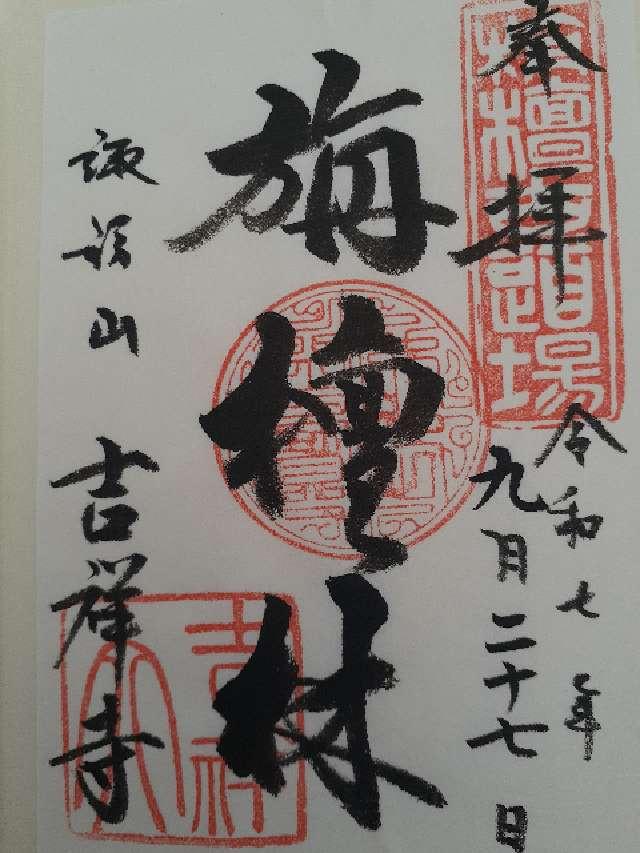 奉拝
令和七年
九月二十七日
旃檀林
諏訪山 吉祥寺